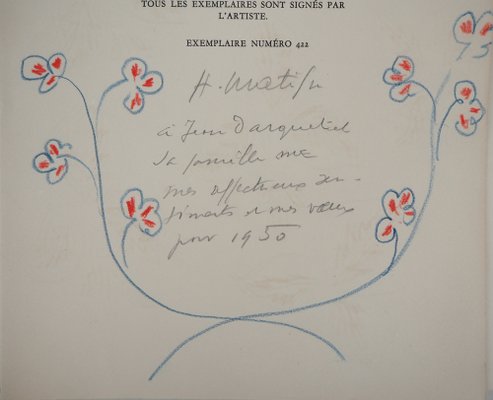 TOUS LES EXEMPLAIRES SONT SIGNÉS PAR
L'ARTISTE.
EXEMPLAIRE NUMÉRO 422
H. Matisse
à Jean
sa famille
mes affectueux sen-
timents et mes vœux
pour 1950